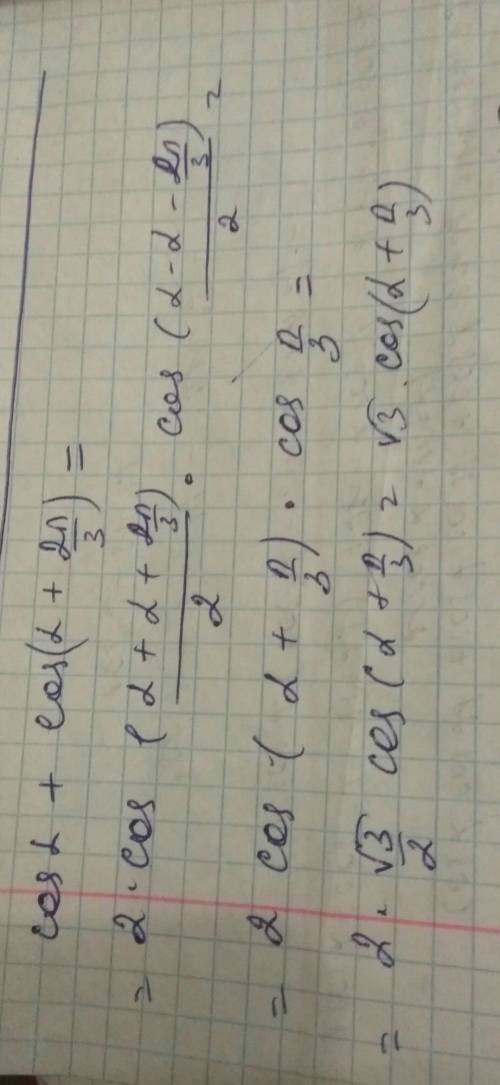 cos α + cos(α + 2π/3) =
= 2 · cos (α + α + 2π/3)/2 · cos (α - α - 2π/3)/2 =
= 2 cos (α + π/3) · cos π/3 =
= 2 · √3/2 cos (α + π/3) = √3 · cos(α + π/3)